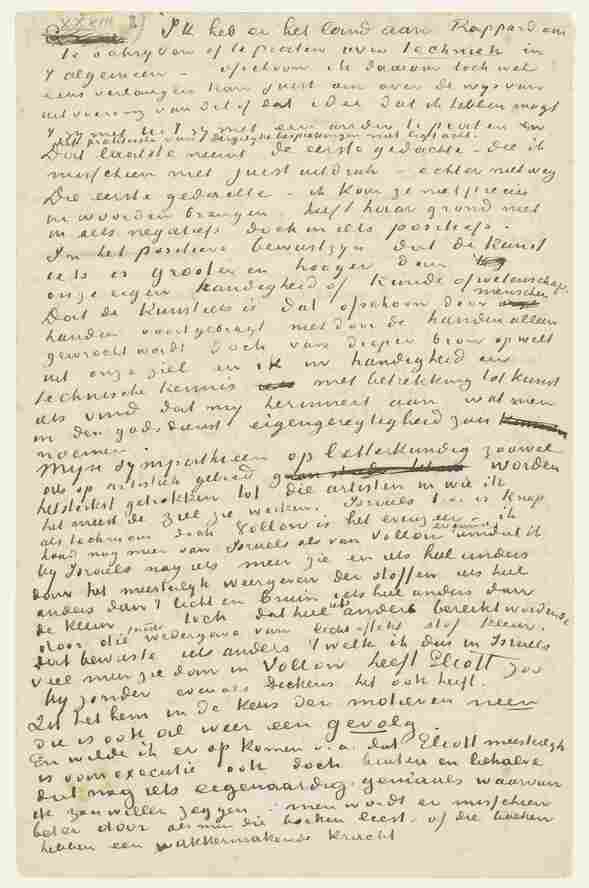 XXXIII 2) Ik heb er het land aan Rappard om
te schryven of te praten over techniek in
't algemeen – ofschoon ik daarom toch wel
eens verlangen kan juist om over de wys van
uitvoering van dit of dat idee dat ik hebben mogt
't zy met U 't zy met een ander te praten en
het praktische van dergelyke besprekingen niet ligt acht.
Doch laatste neemt de eerste gedachte – die ik
misschien niet juist uitdruk – echter niet weg
Die eerste gedachte – ik kan ze niet precies
in woorden brengen, heeft haar grond niet
in iets negatiefs doch in iets positiefs.
In het positieve bewustzyn dat de kunst
iets is grooter en hooger dan
onze eigen handigheid of kunde of wetenschap.
Dat de kunst iets is dat ofschoon door menschen
handen voortgebragt niet door de handen alleen
gewrocht wordt doch van dieper bron opwelt
uit onze ziel en ik in handigheid en
technische kennis met betrekking tot kunst
iets vind dat my herinnert aan wat men
in den godsdienst eigengeregtigheid zou
noemen.
Myn sympathieen op letterkundig zoowel
als op artistiek gebied worden
het sterkst getrokken tot die artisten in wie ik
het meest de ziel zie werken. Israels b.v. is knap
als technicus doch Vollon is het evenzeer – ik
houd nog meer van Israels als van Vollon evenwel omdat ik
by Israels nog iets meer zie en iets heel anders
dan het meesterlyk weergeven der stoffen iets heel
anders dan 't licht en bruin iets heel anders dan
de kleur – toch dat heel iets anders bereikt wordende
door die juiste wedergave van licht effekt stof kleur.
Dat bewuste iets anders 't welk ik dus in Israels
veel meer zie dan in Vollon heeft Elcott zoo
by zonder evenals Dickens het ook heeft.
Zit het hem in de keus der motieven neen
die is ook al weer een gevolg.
En wilde ik er op komen o.a. dat Elcott meesterlyk
is van executie ook doch buiten en behalve
dat nog iets eigenaardig geniaals waarvan
ik zou willen zeggen – men wordt er misschien
beter door als men die boeken leest – of die boeken
hebben een wakkermakende kracht